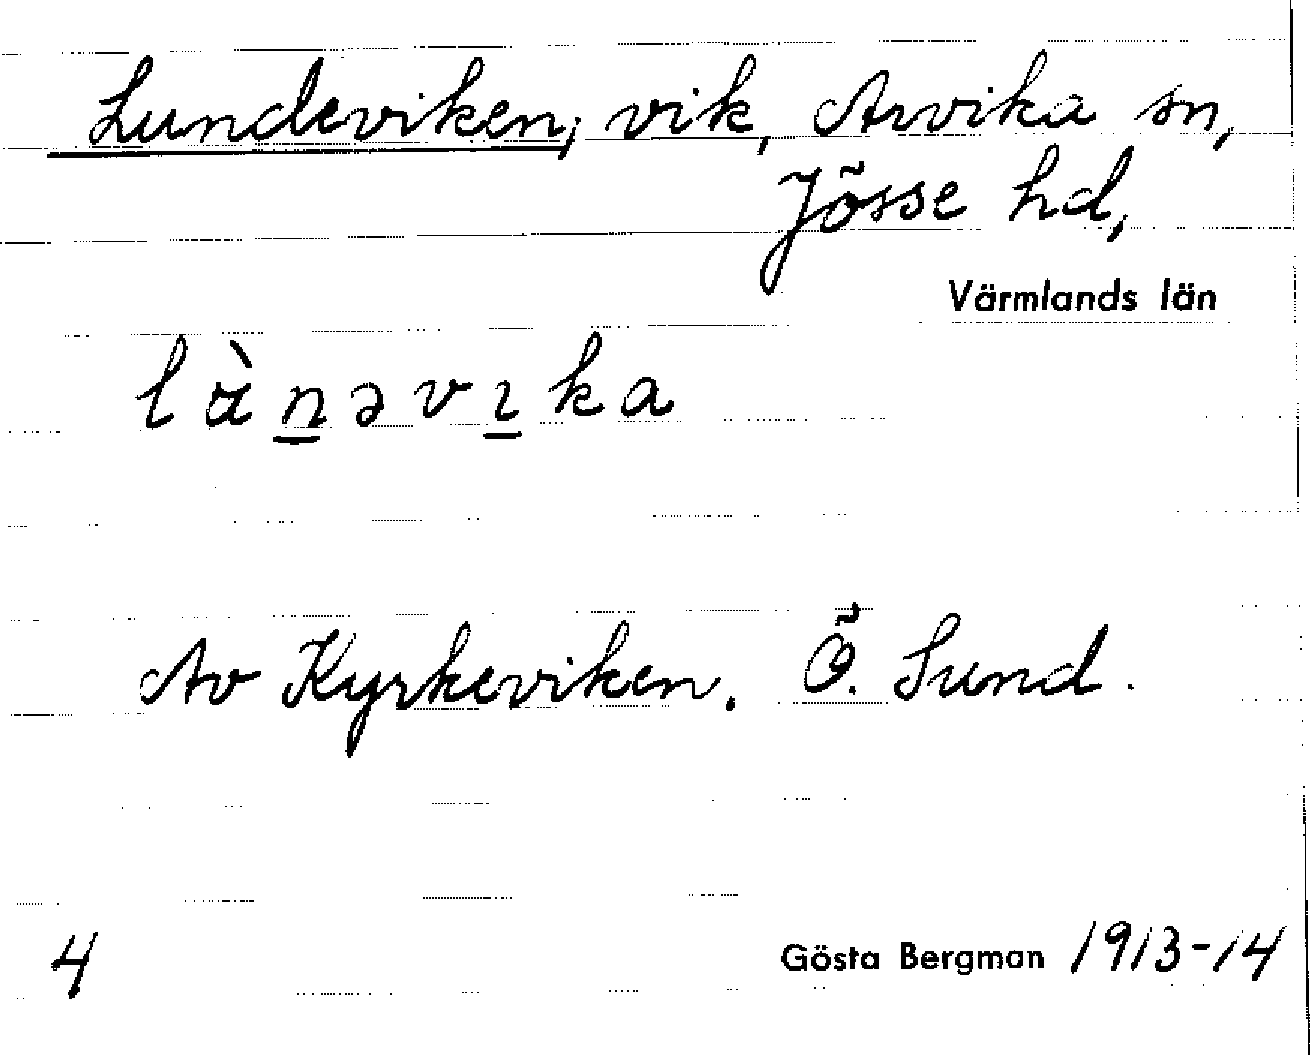 Lundeviken, vik, Arvika sn,
Jösse hd,
Värmlands län
lὰn̲əvɪ̲ka
Av Kyrkeviken. Ö. Sund.
4
Gösta Bergman 1913-14